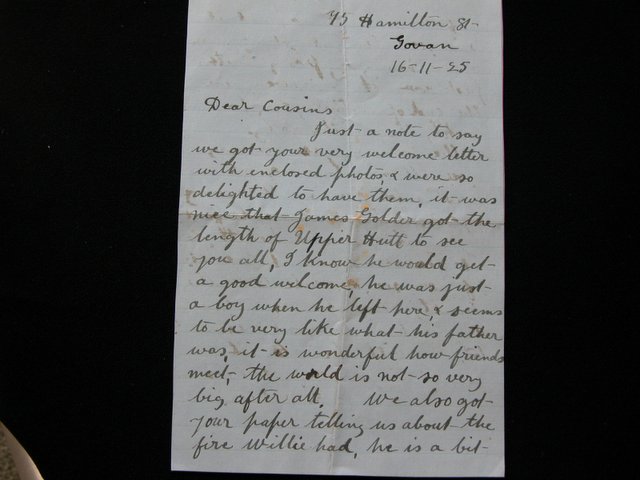 95 Hamilton St
Govan
16-11-25
Dear Cousins
Just a note to say
we got your very welcome letter
with enclosed photos & were so
delighted to have them, it was
nice that James Golder got the
length of Upper Hutt to see
you all, I know he would get
a good welcome, he was just
a boy when he left here, & seems
to be very like what his father
was, it is wonderful how friends
meet, the world is not so very
big after all. We also got
your paper telling us about the
fire Willie had, he is a bit